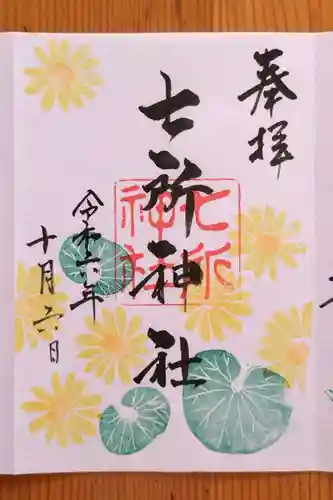 奉拝
七所神社
七所
神社
令和六年
十月六日